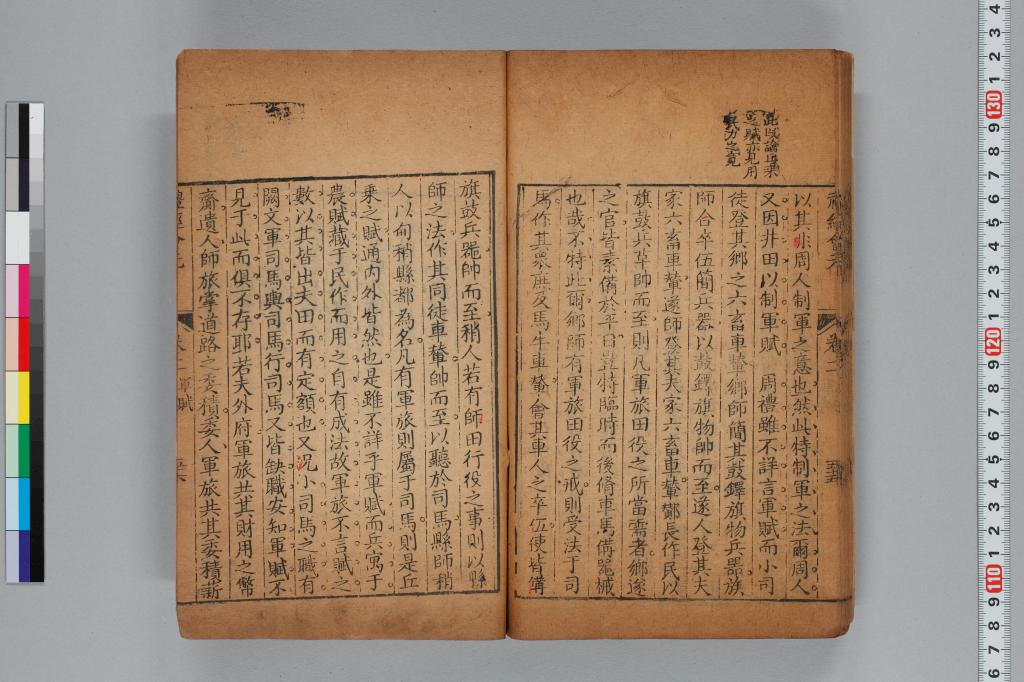 禮經會元 卷二
以其非周人制軍之意也然此特制軍之法爾周人
又因井田以制軍賦 周禮雖不詳言軍賦而小司
徒登其鄉之六畜車輦鄉師簡其鼓鐸旗物兵器族
師合卒伍簡兵器以鼓鐸旗物帥而至遂人登其夫
家六畜車輦遂師登其夫家六畜車輦酇長作民以
旗鼓兵革帥而至則凡軍旅田役之所當需者鄉遂
之官皆素備於平日豈特臨時而後脩車馬備器械
也哉不特此爾鄉師有軍旅田役之戒則受法于司
馬作其眾庶及馬牛車輦會其車人之卒伍使皆備
旗鼓兵器帥而至稍人若有師田行役之事則以縣
師之法作其同徒車輦帥而至以聽於司馬縣師稍
人以甸稍縣都為名凡有軍旅則屬于司馬則是丘
乘之賦通內外皆然也是雖不詳乎軍賦而兵寓于
農賦藏于民作而用之自有成法故軍旅不言賦之
數以其皆出夫田而有定額也又况小司馬之職有
闕文軍司馬輿司馬行司馬又皆缺職安知軍賦不
見于此而俱不存耶若夫外府軍旅共其財用之幣
齎遺人師旅掌道路之委積委人軍旅共其委積薪